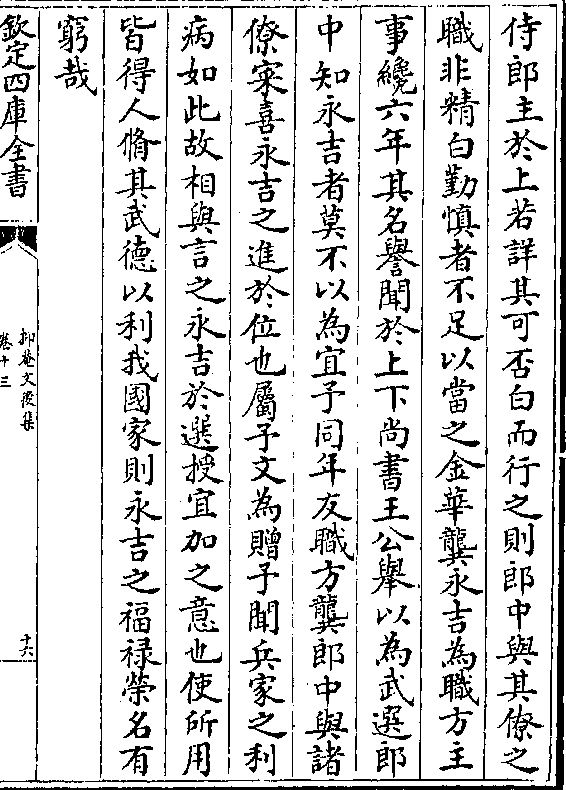 侍郎主於上若詳其可否白而行之則郎中與其僚之
職非精白勤慎者不足以當之金華龔永吉為職方主
事纔六年其名譽聞於上下尚書王公舉以為武選郎
中知永吉者莫不以為宜予同年友職方龔郎中與諸
僚寀喜永吉之進於位也屬予文為贈予聞兵家之利
病如此故相與言之永吉於選授宜加之意也使所用
皆得人脩其武德以利我國家則永吉之福禄榮名有
窮哉
欽定四庫全書
抑菴文後集
卷十三
十六